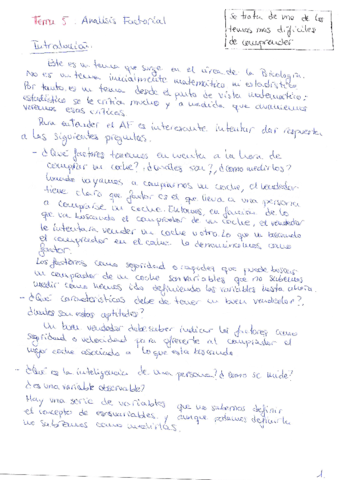 Tema 5. Análisis Factorial
Se trata de uno de los
temas más difíciles
de comprender
Introducción.
Este es un tema que surge en el área de la Psicología.
No es un tema inicialmente matemático ni estadístico
Por tanto, es un tema desde el punto de vista matemático;
estadístico se le critica mucho y a medida que avancemos
veremos esas críticas.
Para entender el AF es interesante intentar dar respuesta
a las siguientes preguntas.
- ¿Qué factores tenemos en cuenta a la hora de
comprar un coche? ¿Cuáles son?, ¿Cómo medirlos?
Cuando vayamos a comprarnos un coche, el vendedor
tiene claro que factor es el que lleva a una persona
a comprarse un coche. Entonces, en función de lo
que va buscando el comprador de un coche, el vendedor
le intentaría vender un coche u otro. Lo que va buscando
el comprador en el coche lo denominamos como
factor.
Los factores como seguridad o rapidez que puede buscar
un comprador de un coche son variables que no sabemos
medir como hemos ido definiendo las variables hasta ahora.
- ¿Qué características debe de tener un buen vendedor?,
¿Cuáles son estas aptitudes?
Un buen vendedor debe saber indicar los factores como
seguridad o velocidad para ofrecerle al comprador el
mejor coche asociado a lo que esta buscando
- ¿Qué es la inteligencia de una persona? ¿Cómo se mide?
¿es una variable observable?
Hay una serie de variables que no sabemos definir
el concepto de esas variables y aunque podamos definirla
no sabríamos como medirlas.
1